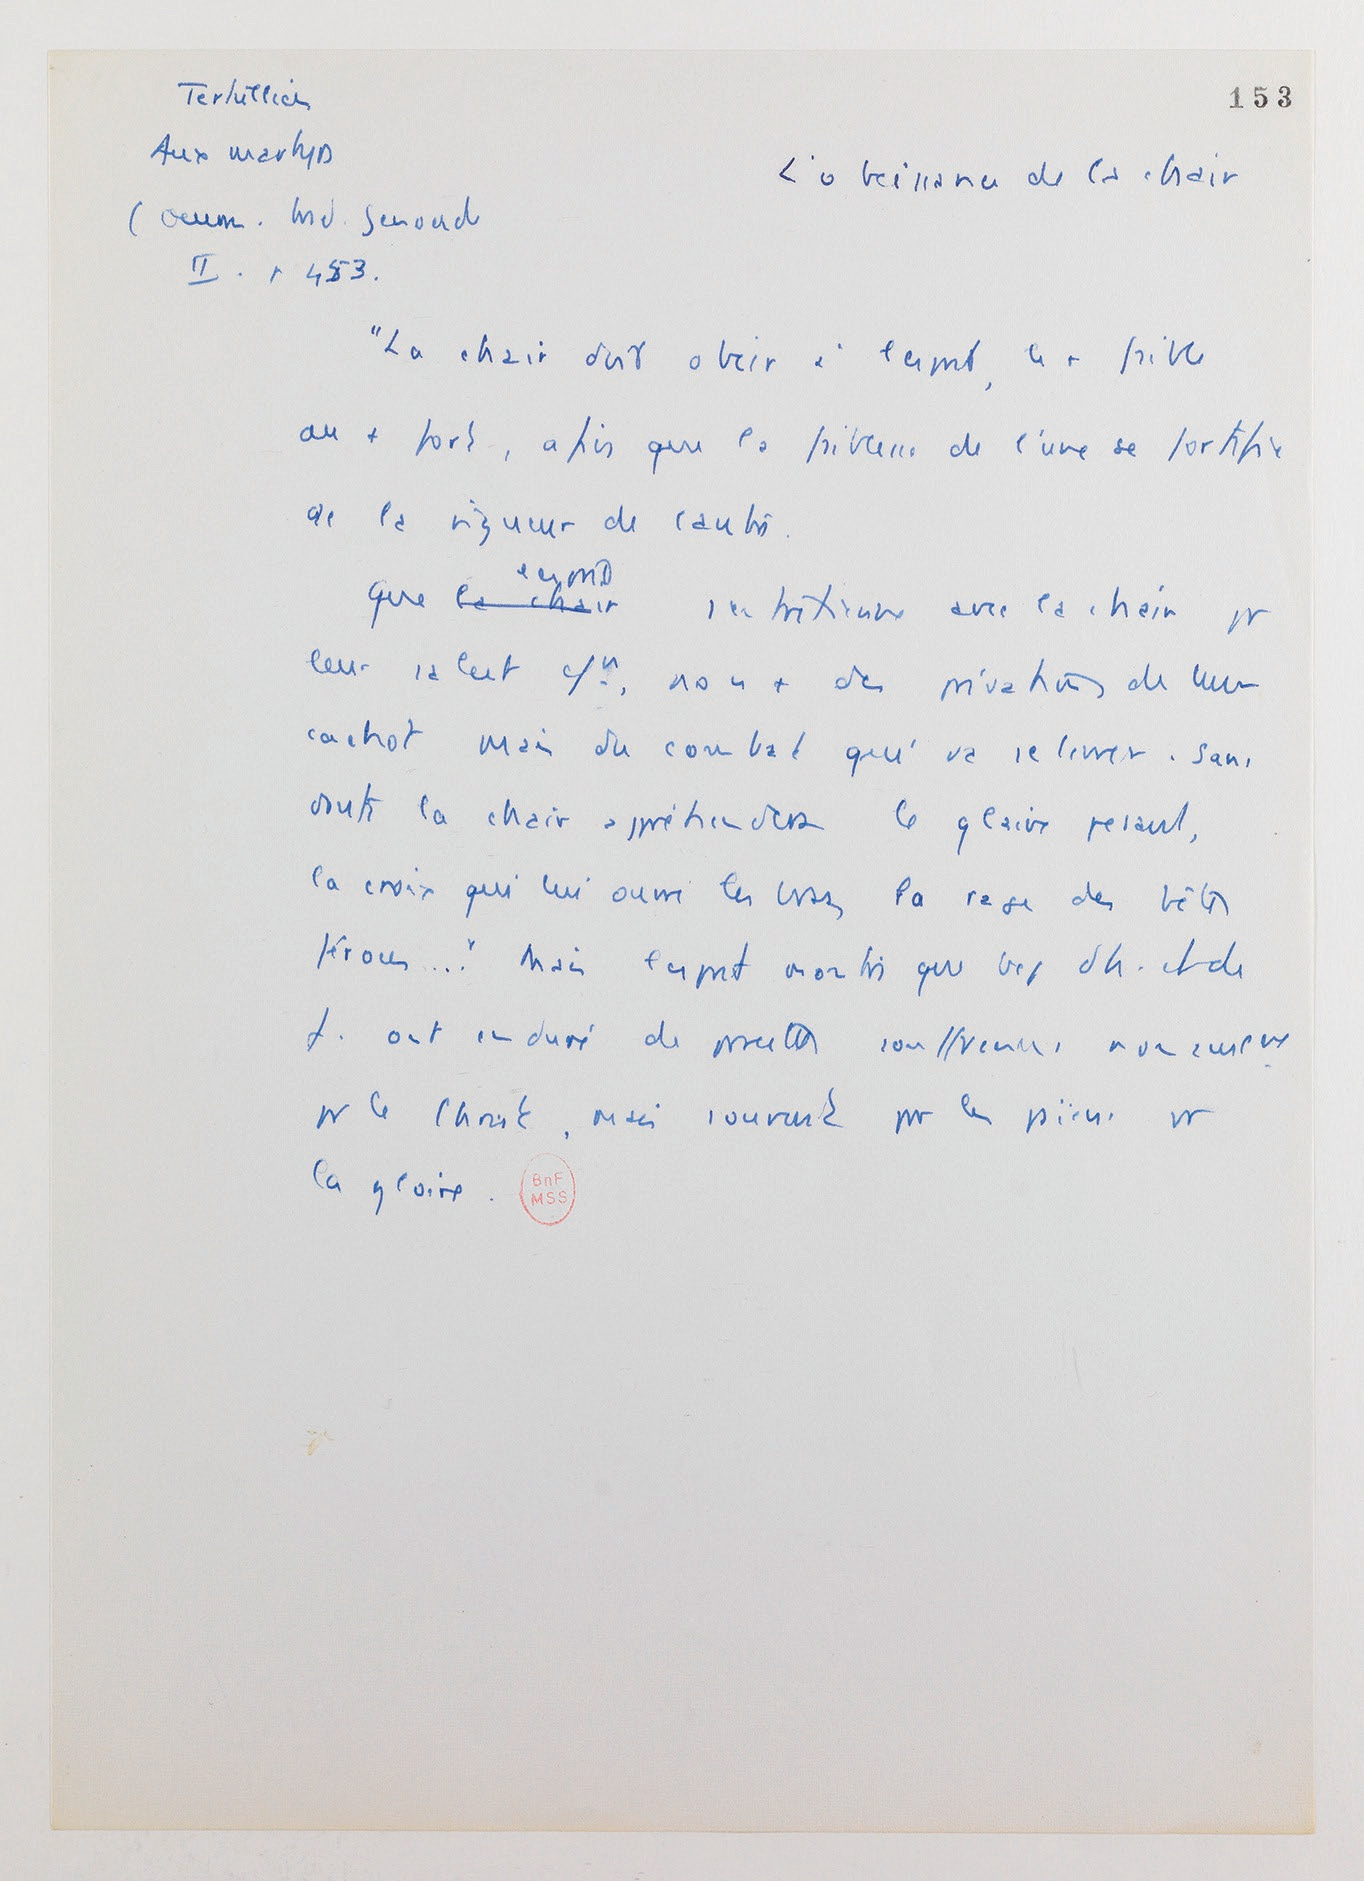 153
Tertullien
Aux martyrs
L'obeissance de la chair
( Oeuvres. trad. Genoude
II. p 453.
"La chair doit obeir à l'esprit, le + faible
au + fort, afin que la faiblesse de l'une se fortifie
de la vigueur de l'autre.
l'esprit
Que la chair s'entretienne avec la chair pr
leur salut cn, non + des privations de leur
cachot mais du combat qui va se livrer. Sans
doute la chair appréhendera le glaive pesant,
la croix qui lui ouvre les bras, la rage des bêtes
féroces..." Mais l'esprit montre que bcp d'h. et de
f. ont enduré de pareilles souffrances non seulemt
pr le Christ, mais souvent pr les païens pr
la gloire.
BnF
MSS